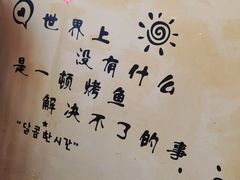 世界上
没有什么
是一顿烤鱼
解决不了的事
"달콤한시간"